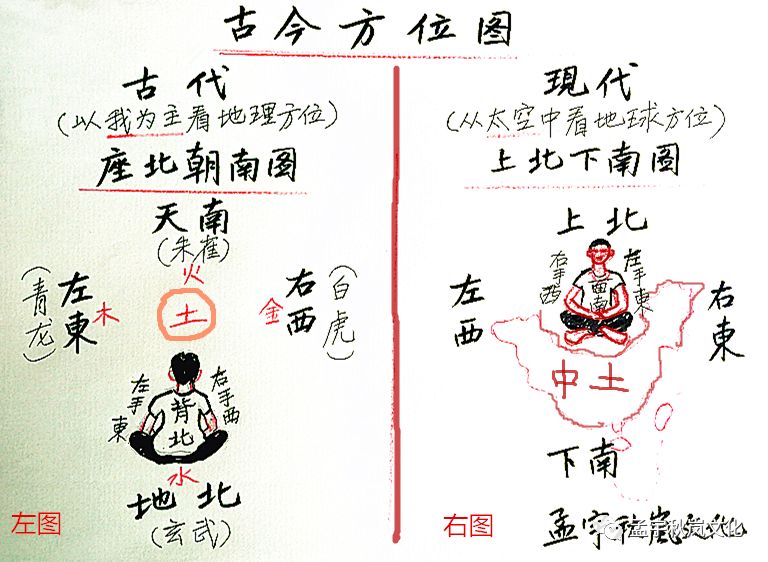 古今方位图
古代
(以我为主看地理方位)
座北朝南图
天南
(朱雀)
火
(青龙)
左東
木
土
金
右西
(白虎)
左手東
右手西
背北
水
地北
(玄武)
左图
現代
(从太空中看地球方位)
上北下南图
上北
右手西
左手東
面南
左西
右東
中土
下南
右图
孟宇秋嵐文化
孟宇秋岚文化